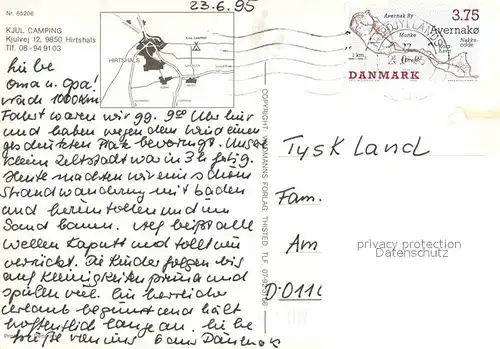 23.6.95
Nr. 85206
KJUL CAMPING
Kjulvej 12, 9850 Hirtshals
Tlf. 08-949103
HIRTSHALS
KJUL CAMPING
liebe
Oma u. Opa!
Nach 1000 Km
Fahrt waren wir gg. 9⁰⁰ Uhr hier
und haben wegen dem Wind einen
geschützten Platz bevorzugt. Unsere
kleine Zeltstadt was in 3h fertig.
Heute machten wir eine schöne
Strandwanderung mit baden
und herumtollen und im
Sand bauen. Meg beißt alle
Wellen kaputt und tollt wie
verrückt. Die Kinder folgen bis
auf Kleinigkeiten prima und
spielen viel. Ein herrlicher
Urlaub beginnt und hält
hoffentlich lange an. Liebe
Grüße von uns 6 aus Dänemark
COPYRIGHT: FORLAG, THISTED. TLF.
3.75
Avernakø
Avernak By
Munke
1 km
DANMARK
Tyskland
Fam.
Am
D-011
privacy protection